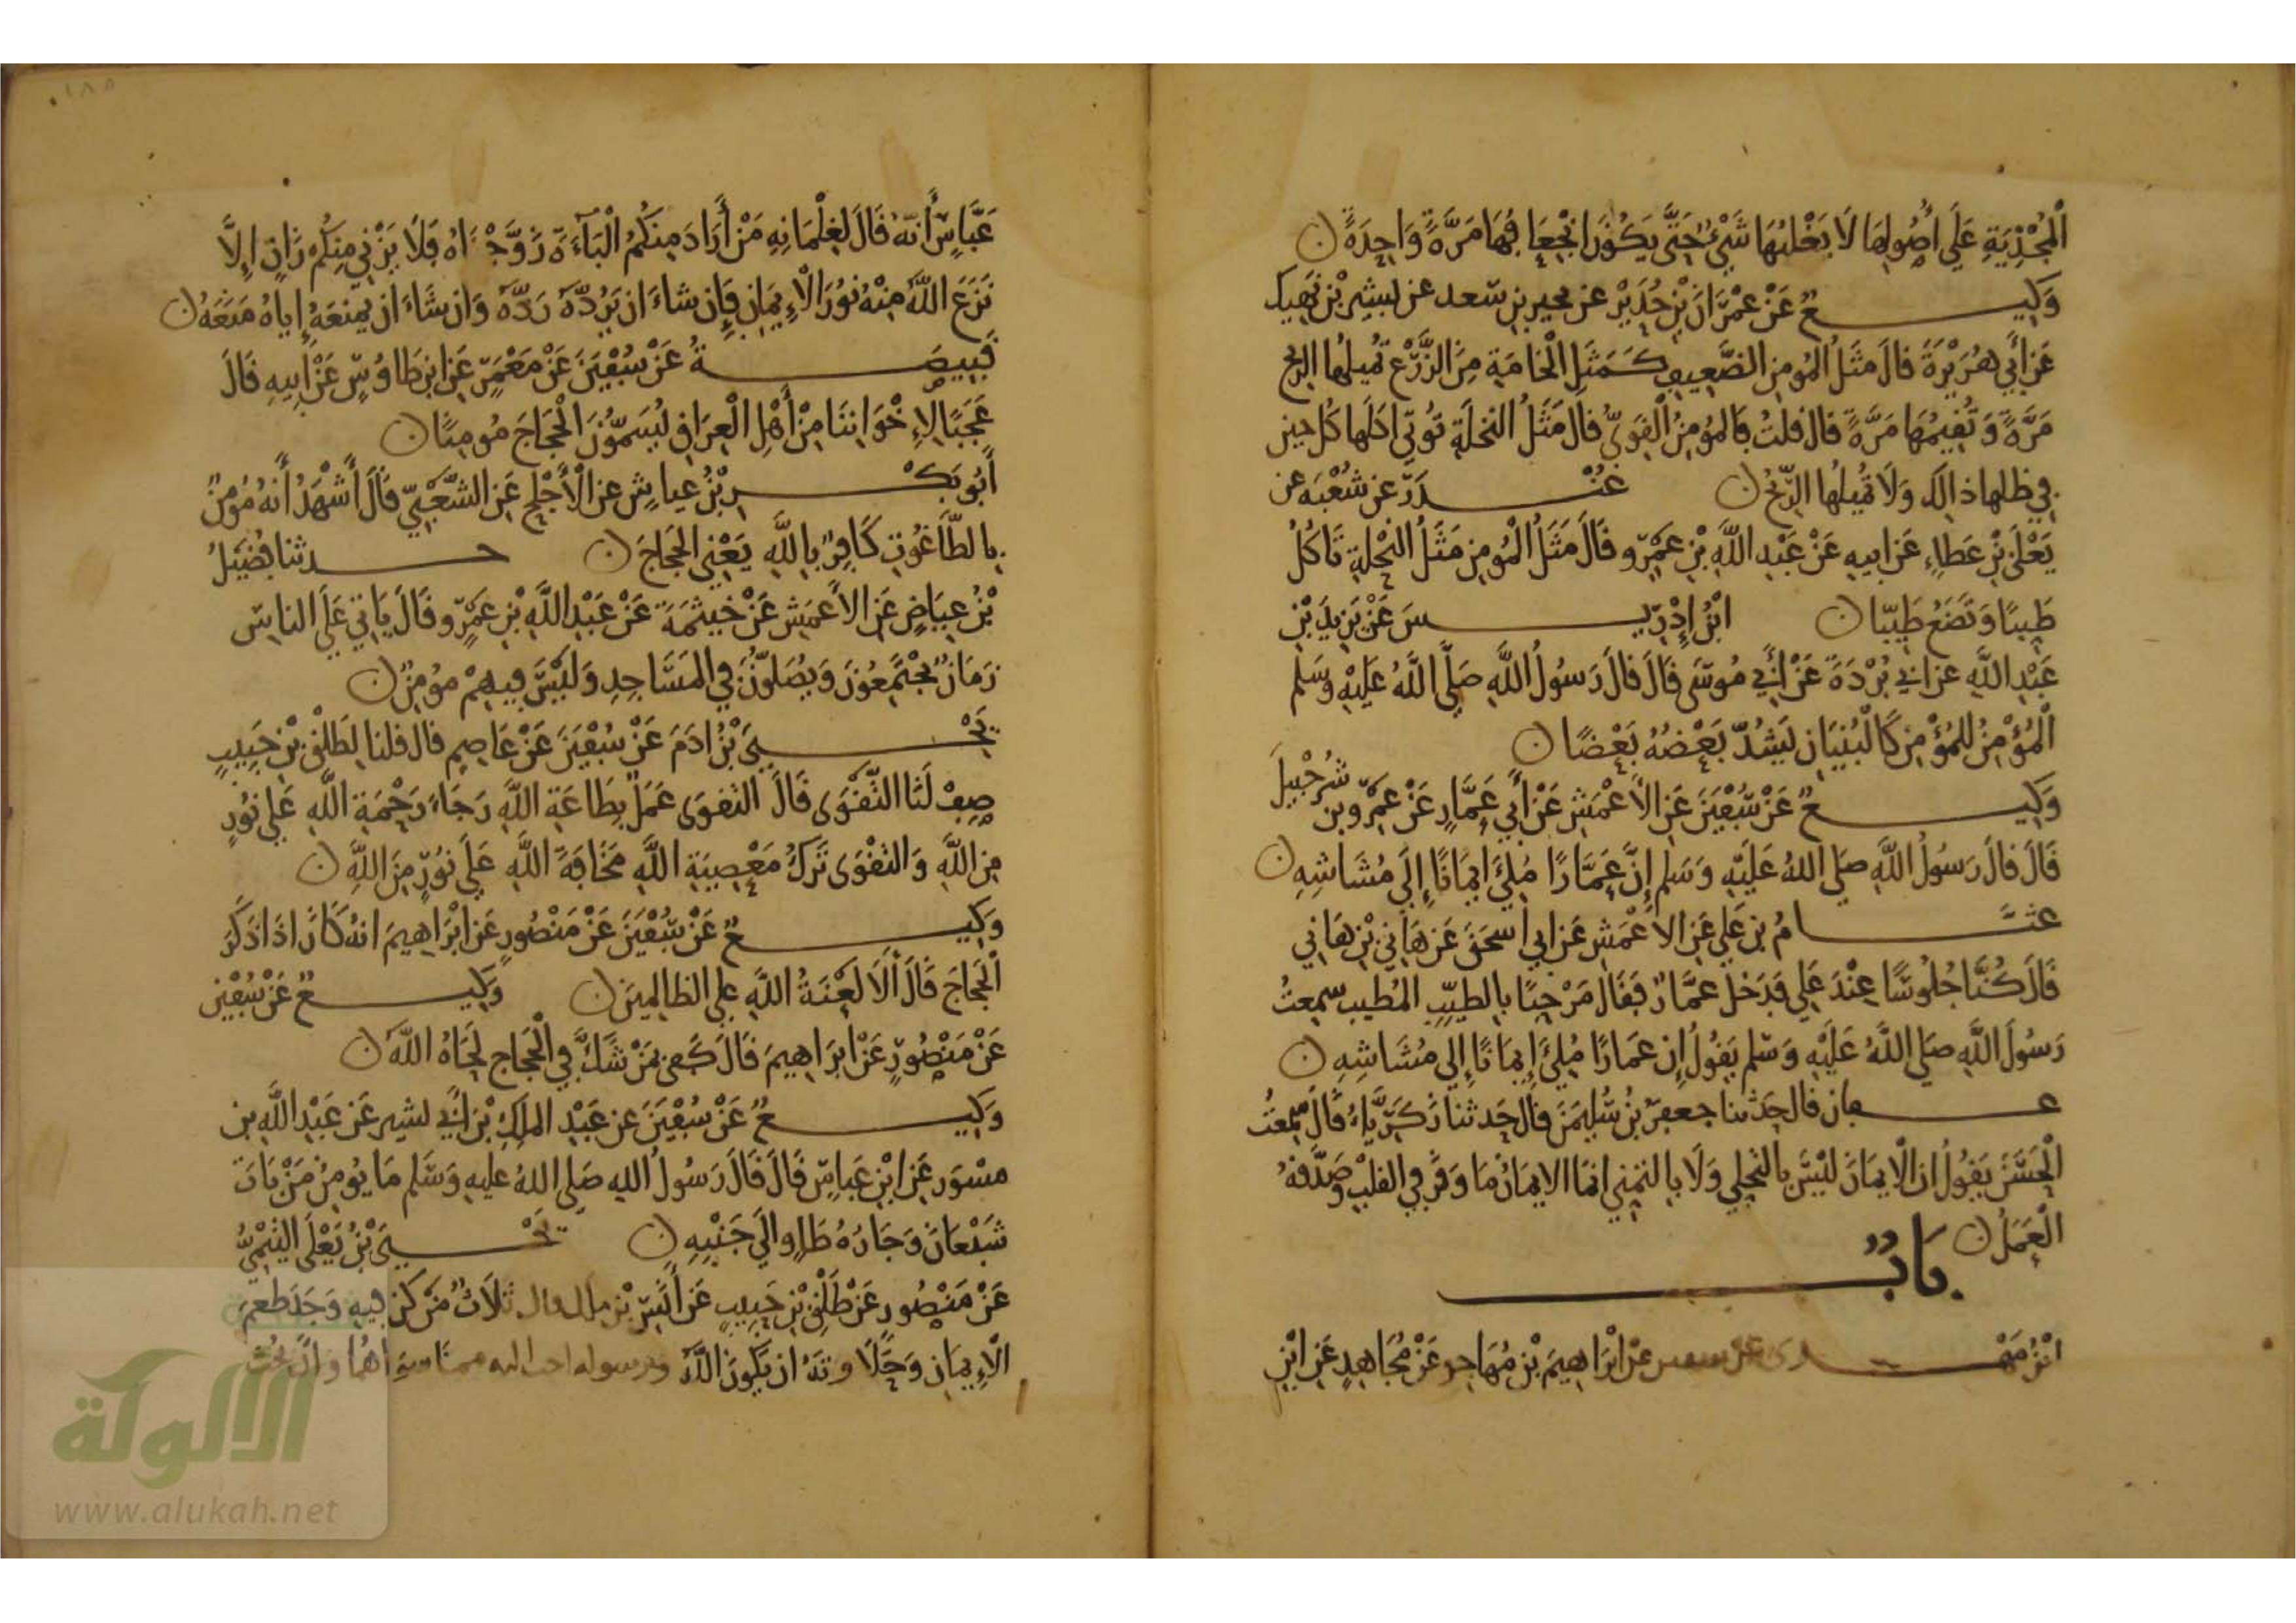 الْمُجْذِيَةِ عَلَى أُصُولِهَا لَا يَغْلِبُهَا شَيْءٌ حَتَّى يَكُونَ انْجِعَافُهَا مَرَّةً وَاحِدَةً ن
وَكِيـــعٌ عَنْ عِمْرَانَ بْنِ حُدَيْرٍ عن يحيى بن سعد عن بشير بن نهيك
عَنْ أَبِي هُرَيْرَةَ قالَ مَثَلُ الْمُومِنِ الضَّعِيفِ كَمَثَلِ الْخَامَةِ مِنَ الزَّرْعِ تُمِيلُها الرِّيحُ
مَرَّةً وَتُقِيمُهَا مَرَّةً قالَ قلتُ فَالْمُومِنُ الْقَوِيُّ قالَ مَثَلُ النَّخلَةِ تُوتِي اكلَها كُل حين
في ظلها ذالك وَلَا تُمِيلُها الرِّيحُ ن غُنْـــدَرٌ عن شُعْبَة عن
يَعْلَى بْنِ عَطَاءٍ عَن ابيهِ عَنْ عَبْدِ اللَّهِ بْنِ عَمْرٍو قَالَ مَثَلُ الْمُومِنِ مَثَلُ النَّحْلَةِ تَاكُلُ
طَيِّبًا وَتَضَعُ طَيِّبًا ن ابْنُ إِدْرِيـــسَ عَنْ يَزِيدَ بْنِ
عَبْدِ اللَّهِ عن ابي بُرْدَةَ عَنْ أَبِي مُوسَى قَالَ قالَ رَسُولُ اللَّهِ صَلَّى اللَّهُ عَلَيْهِ وَسَلم
الْمُؤْمِنُ لِلْمُؤْمِنِ كَالْبُنْيَانِ يَشُدُّ بَعْضُهُ بَعْضًا ن
وَكِيـــعٌ عَنْ سُفْيَنَ عَنِ الأَعْمَشِ عَنْ أَبِي عَمَّارٍ عَنْ عَمْرِو بن شُرَحْبِيلَ
قَالَ قالَ رَسُولُ اللَّهِ صَلى اللهُ عَلَيْهِ وَسَلم إِنَّ عَمَّارًا مُلِئَ ايمَانًا إِلَى مُشَاشِهِ ن
عثـــامُ بن عَلي عَنِ الاعْمَشِ عَن ابي اسحَقَ عَن هَانِئِ بْنِ هَانِي
قَالَ كُنَّا جُلُوسًا عِنْدَ عَلِي فَدَخَلَ عَمَّارٌ فَقَالَ مَرْحَبًا بِالطيِّبِ المُطيب سمِعتُ
رَسُولَ اللَّهِ صَلى اللَّهُ عَلَيْهِ وَسَلم يَقُولُ إِن عَمارًا مُلِئَ إِيمَانًا إِلى مُشَاشِهِ ن
عـــفان قال حَدثنا جعفرُ بْنُ سُلَيمَنَ قالَ حَدثنا زَكَرِيَّاءُ قَالَ سَمِعتُ
الْحَسَنَ يَقُولُ ان الْايمَانَ ليْسَ بالتحَلي وَلَا بِالتمني انمَا الايمَانُ مَا وَقَرَ في القلبِ وَصَدَّقهُ
الْعَمَلُ ن
بَابُ
ابْنُ مَهْـــدي عَنْ سفين عَنْ ابْرَاهِيمَ بْنِ مُهَاجر عَنْ مُجَاهِدٍ عَنِ ابْنِ
عَبَّاسٍ أَنهُ قَالَ لِغِلْمَانِهِ مَنْ أَرَادَ مِنكُمُ الْبَآءَةَ زَوَّجْنَاهُ فَلَا يَزْنِي مِنكُم زَانٍ إِلاَّ
نَزَعَ اللَّهُ مِنْهُ نُورَ الْإِيمَانِ فَإِن شاءَ ان يَرُدَّهُ رَدَّهُ وَان شَاءَ ان يمنَعَهُ إِياهُ مَنَعَهُ ن
قَبِيصَـــةُ عَنْ سُفْيَنَ عَنْ مَعْمَرٍ عَنِ ابن طَاوُسٍ عَنْ أَبِيهِ قَالَ
عَجَبًا لِإِخْوَانِنَا مِنْ أَهْلِ الْعِرَاقِ يُسَمُّونَ الْحَجَاجَ مُومِنًا ن
أَبُو بَكْـــرِ بْنُ عياشٍ عن الْأَجْلَحِ عَنِ الشَّعْبِيِّ قَالَ أَشْهَدُ أَنهُ مُؤمِنٌ
بِالطَّاغُوتِ كَافِرٌ بِاللَّهِ يَعْنِي الحَجاجَ ن حـــدثنا فُضَيلُ
بْنُ عِيَاضٍ عَنِ الأَعْمَشِ عَنْ خَيثَمَةَ عَنْ عَبْدِ اللَّهِ بْنِ عَمْرٍو قَالَ يَاتِي عَلَى الناسِ
زَمَانٌ يَجْتَمِعُونَ وَيُصَلُّونَ فِي المَسَاجِدِ وَلَيْسَ فِيهِمْ مُؤمِنٌ ن
يَحْـــيَى بْنُ ادَمَ عَنْ سُفْيَنَ عَنْ عَاصِمٍ قالَ قلنا لِطَلْقِ بْنِ حَبِيبٍ
صِفْ لَنَا التَّقْوَى قَالَ التقوَى عَمَلٌ بِطَاعَةِ اللَّهِ رَجَاءَ رَحْمَةِ اللَّهِ عَلَى نُورٍ
مِنَ اللَّهِ وَالتقْوَى تَرْكُ مَعْصِيَةِ اللَّهِ مَخَافَةَ اللَّهِ عَلَى نُورٍ مِنَ اللَّهِ ن
وَكِيـــعٌ عَنْ سُفْيَنَ عَنْ مَنْصُورٍ عَن ابْرَاهِيمَ انهُ كَانَ اذَا ذَكَرَ
الْحَجاجَ قَالَ أَلَا لَعْنَةُ اللَّهِ علي الظالِمِينَ ن وَكِيـــعٌ عَنْ سُفْيَنَ
عَنْ مَنْصُورٍ عَنْ ابْرَاهِيمَ قَالَ كَفى بمَنْ شَكَّ فِي الْحَجاجِ لَحَاهُ اللَّهُ ن
وَكِيـــعٌ عَنْ سُفْيَنَ عن عَبْدِ الملكِ بْنِ أَبِي بشير عَن عَبْدِ اللَّهِ بن
مسْوَر عَنِ ابْنِ عَباسٍ قَالَ قَالَ رَسُولُ اللهِ صَلى اللهُ عليهِ وَسَلم مَا يُومِنُ مَنْ بَاتَ
شَبْعَانَ وَجَارُهُ طَاوٍ الَى جَنْبِهِ ن يَحْـــيَى بْنُ يَعْلَى التَّيْمِيُّ
عَنْ مَنْصُورٍ عَنْ طَلْقِ بْنِ حَبِيبٍ عَن أَنَسِ بْنِ مالك قال ثلَاثٌ مَنْ كُنَّ فِيهِ وَجَدَ طَعْمَ
الْإِيمَانِ وَحَلَاوتَهُ ان يَكُونَ اللَّهُ ورسوله احب اليه مما سِوَاهُمَا وَانْ يُحِبَّ
الألوكة
www.alukah.net